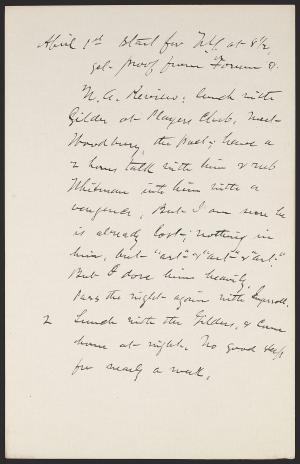 April 1st Start for N.Y. at 8 1/2,
get proof from Forum &
N. A. Review; lunch with
Gilder at Players Club, meet
Woodbury, the poet; have a
2 hours talk with him & rub
Whitman into him with a
vengence, But I am sure he
is already lost; nothing in
him, but "art" & "art" & "art."
But I dose him heavily.
Pass the night again with Ingersoll.
2 Lunch with the Gilders, & come
home at night. No good sleep
for nearly a week.